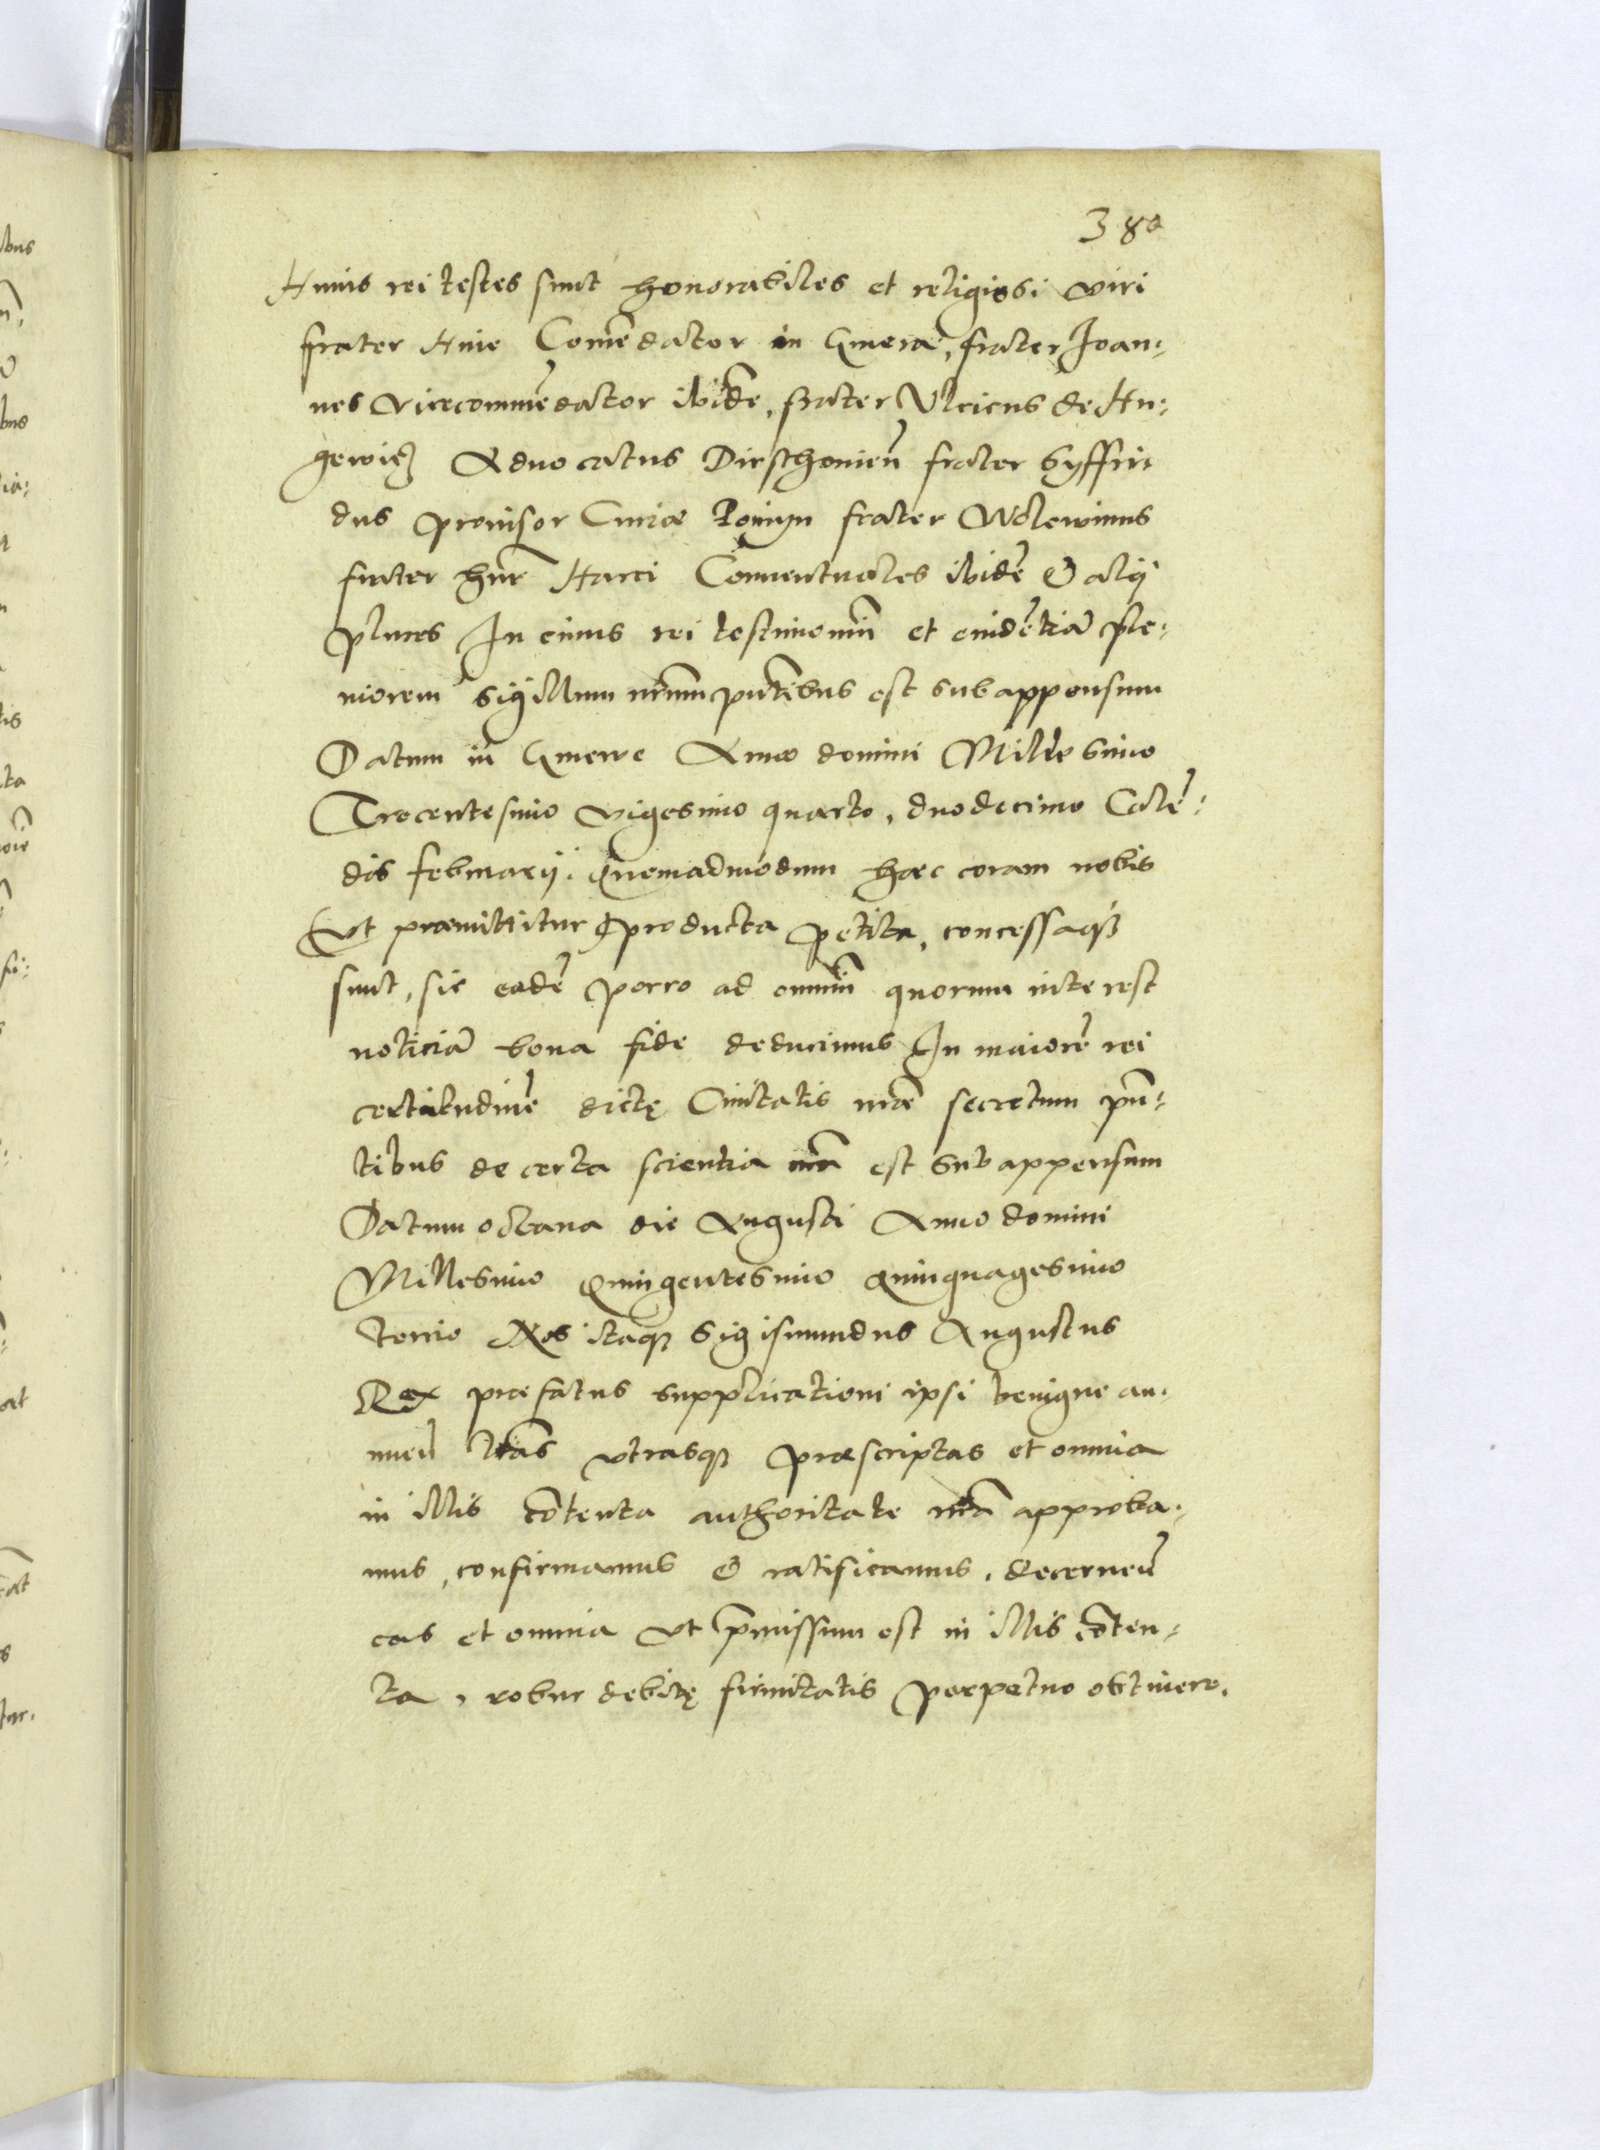 380
Huius rei testes sunt honorabiles et religiosi viri
frater Hnie Comēdator in Gmera, frater Joan:
nes Vicecommēdator ibidē, frater Ulricus de Hu:
gewitz Aduocatus Dirschouien̄ frater Syffri:
dus prouisor Curiæ frater Wolewinus
frater hnr̄ Harci Conuentuales ibidē & alij
plures In cuius rei testimoniū et euidētiā ple:
niorem sigillum nr̄um pn̄tibus est subappensum
Datum in Gmewe Anno domini Millesimo
Trecentesimo vigesimo quarto, duodecimo Calē:
dis februarij. Quemadmodum haec coram nobis
Vt præmittitur producta petita, concessaq3
sunt, sic eadē porro ad omniū quorum interest
noticiā bona fide deducimus In maiorē rei
certitudinē dictę Ciuitatis nr̄æ secretum pn̄:
tibus de certa scientia nr̄a est subappensum
Datum octaua die Augusti Anno domini
Millesimo Quingentesimo quinquagesimo
tercio Nos itaq3 Sigismundus Augustus
Rex præfatus supplicationi ipsi benigne an:
nuen̄ l̄ras vtrasq3 præscriptas et omnia
in illis cōtenta authoritate nr̄a approba:
mus, confirmamus & ratificamus, decernen̄
eas et omnia vt p̄missum est in illis cōten:
ta, robur debitę firmitatis perpetuo obtinere.